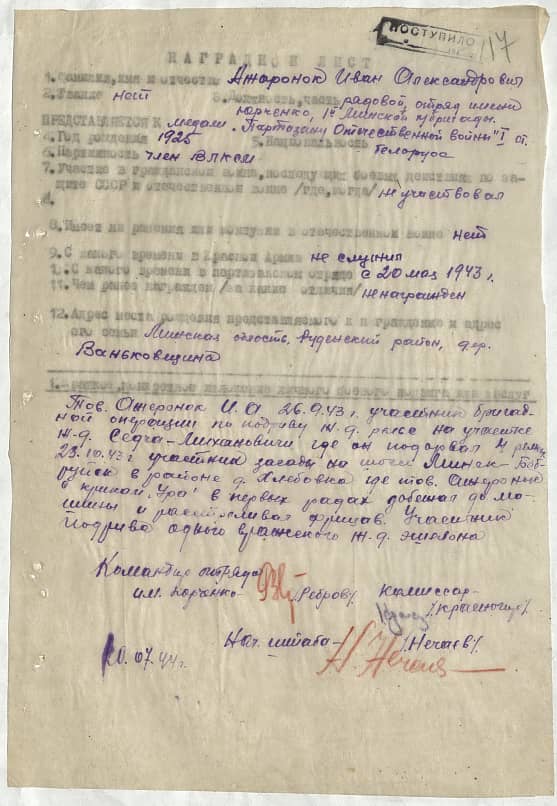 ПОСТУПИЛО
117
НАГРАДНОЙ ЛИСТ
1. Фамилия, имя и отчество Ажаронок Иван Александрович
2. Звание нет 3. Должность, часть рядовой, отряд имени
Юрченко, 1й Минской п/бригады.
ПРЕДСТАВЛЯЕТСЯ К медали „Партизану Отечественной войны" I ст.
4. Год рождения 1925 5. Национальность
белорус
6. Партийность член ВЛКСМ
7. Участие в гражданской войне, последующих боевых действиях по за-
щите СССР и отечественной войне /где, когда/ не участвовал
8. Имеет ли ранения или контузии в отечественной войне нет
9. С какого времени в Красной Армии не служил
10. С какого времени в партизанском отряде с 20 мая 1943 г.
11. Чем ранее награжден /за какие отличия/ не награжден
12. Адрес места рождения представляемого к награждению и адрес
его семьи Минская область, Руденский район, дер.
Ваньковщина
1. Краткое, конкретное изложение личного боевого подвига или заслуг
Тов. Ажеронок И.А. 26.9.43 г. участник бригад-
ной операции по подрыву ж.д. рельс на участке
ж.д. Седча-Михановичи, где он подорвал 4 рельс
23.10.43 г. участник засады на шоссе Минск-Боб-
руйск в районе д. Хлебовка где тов. Ажеронок
с криком „Ура" в первых рядах добежал до ма-
шины и расстреливал фрицев. Участник
подрыва одного вражеского ж.д. эшелона
Командир отряда
им. Юрченко /Ребров/ комиссар-
/Красногир/
Нач. штаба- /Нечаев/
Н. Нечаев
20.07.44 г.